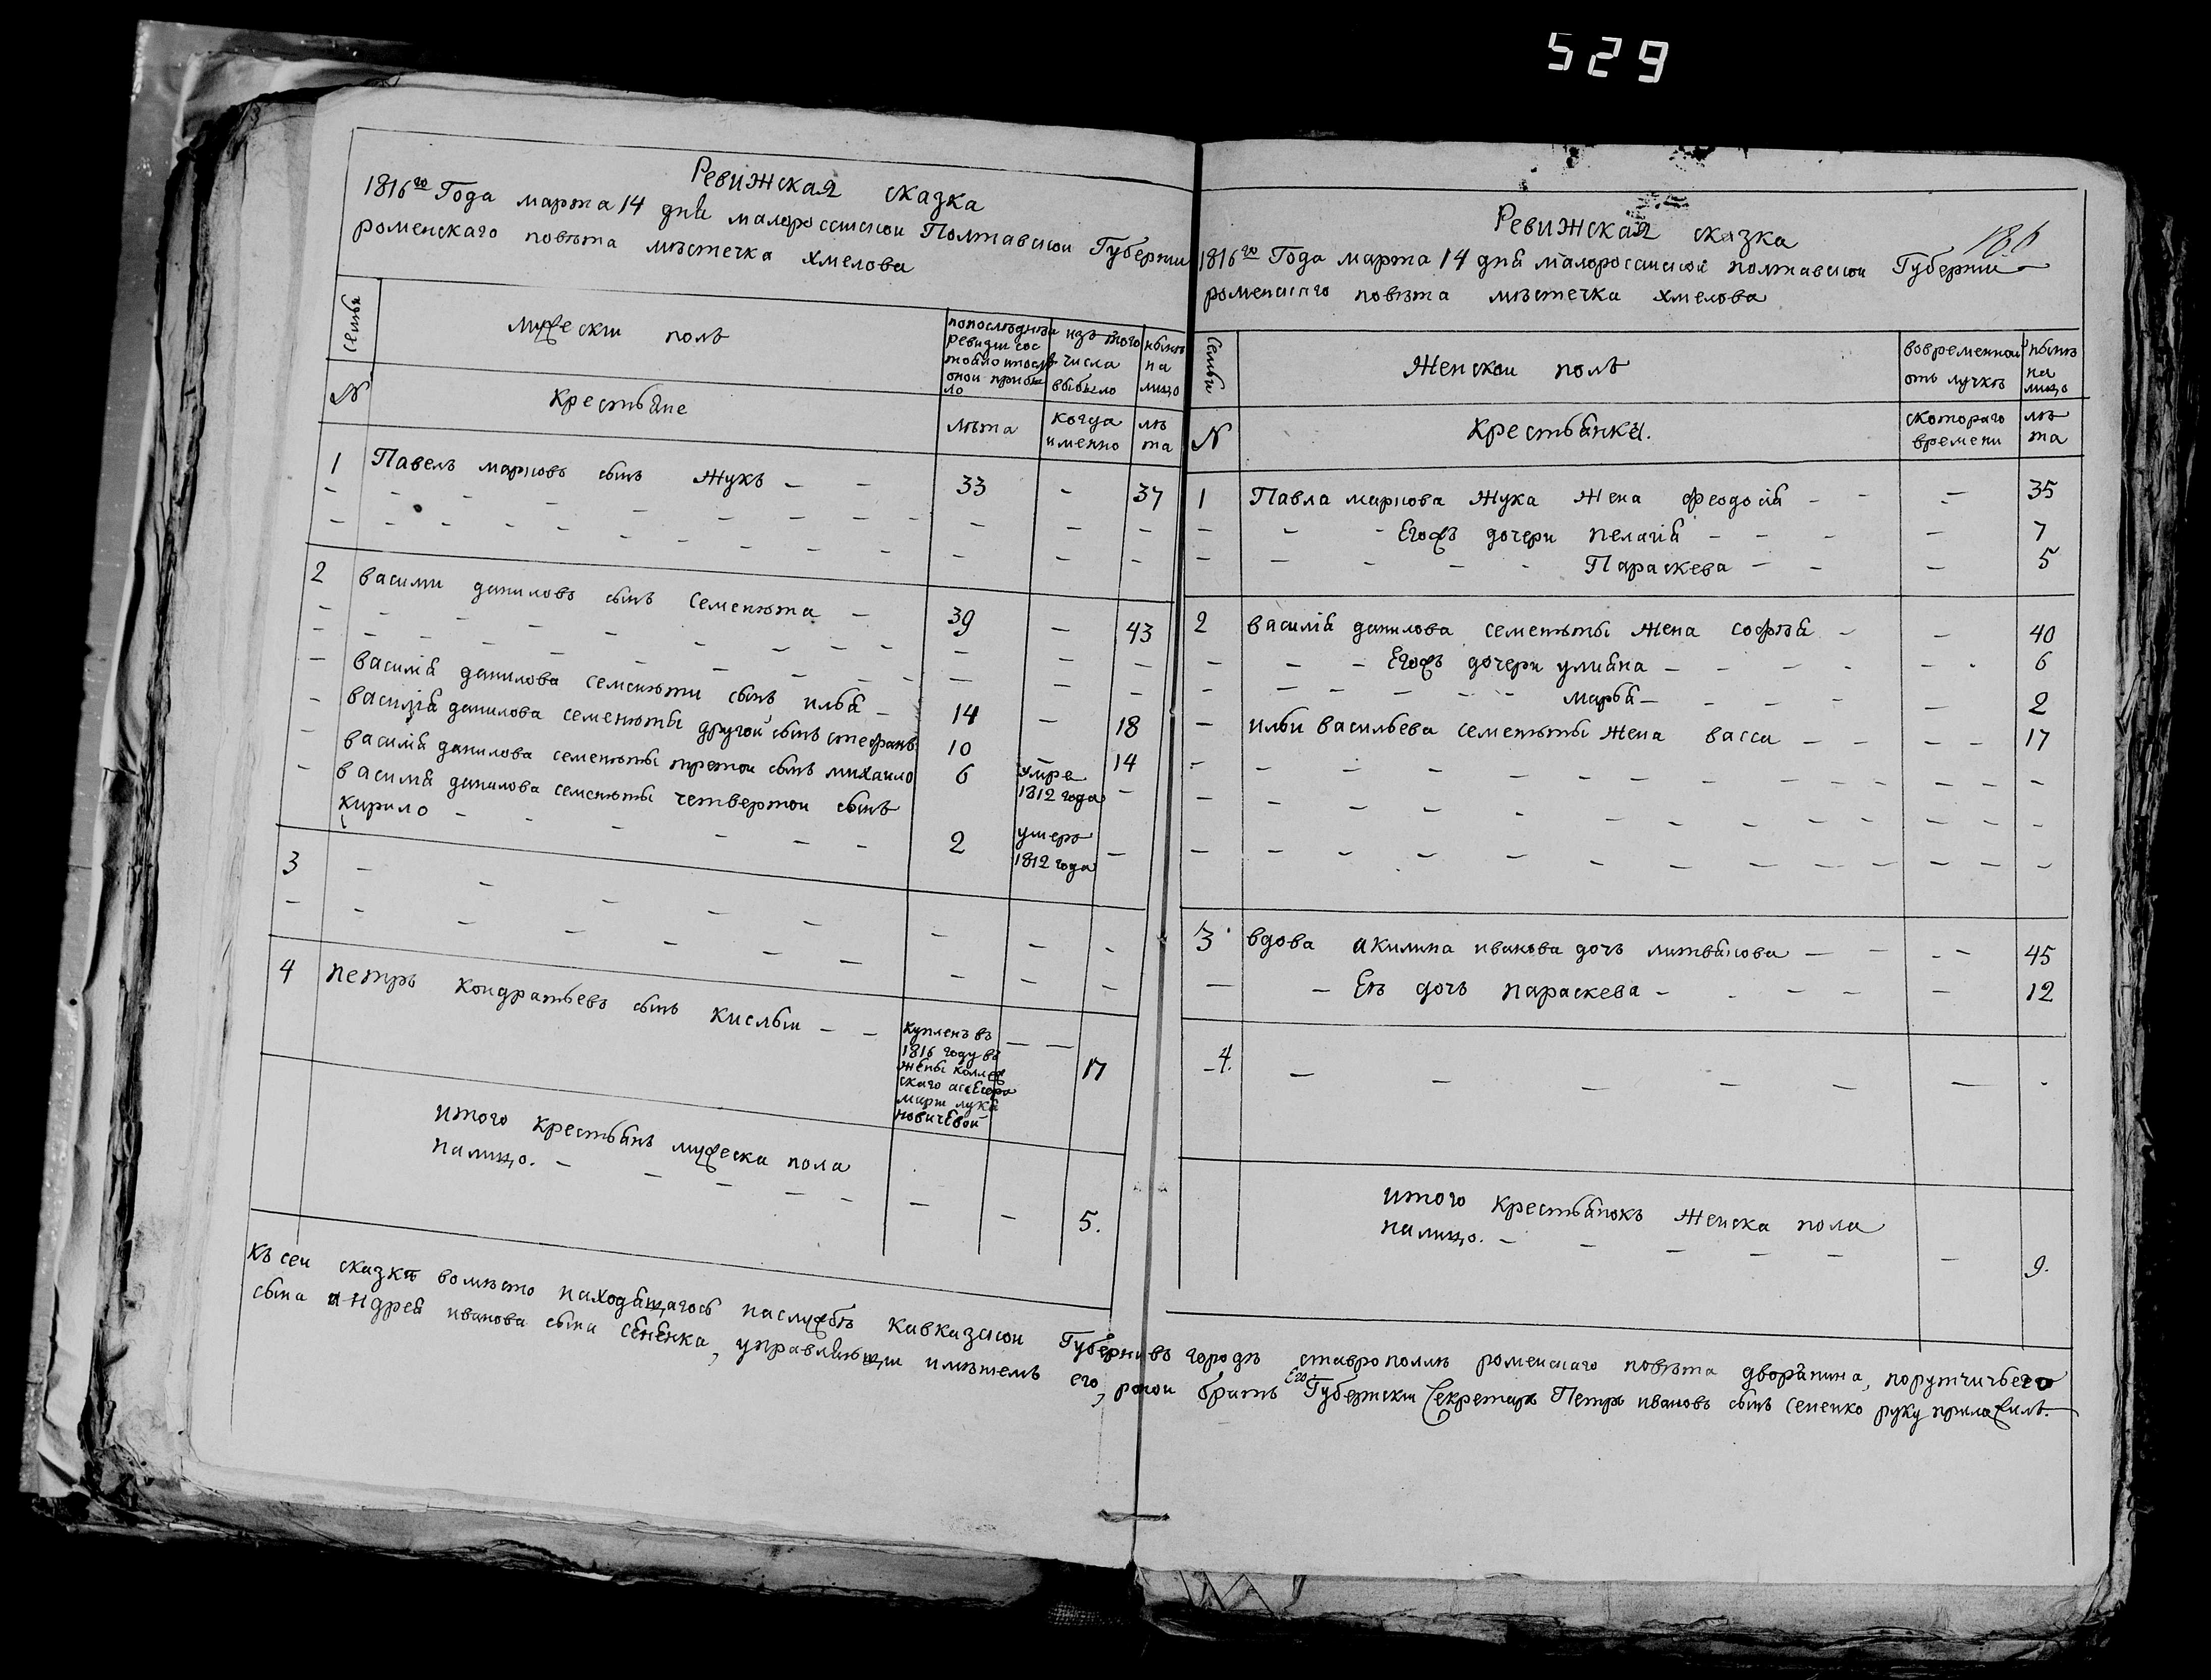 529
Ревижская сказка
1816го Года марта 14 дня малороссиской Полтавской Губернии
роменскаго повѣта мѣстечка хмелова
семьи
мужески полъ
попослѣдней ревизии сос
изъ того числа выбыло
нынѣ на лицо
№
Крестьяне
лѣта
когда именно
лѣ та
1 Павелъ марковъ сынъ Жукъ - - 33 - 37
2 василии даниловъ сынъ Семенюта - 39 - 43
- василія данилова семенюти сынъ илья - 14 - 18
- василія данилова семенюты другой сынъ стефанъ 10 - 14
- василія данилова семенюты третои сынъ михаило 6 умре 1812 года -
- василія данилова семенюты четвертои сынъ
кирило - - - - - 2 умеръ 1812 года -
3
4 петръ кондратьевъ сынъ Кислыи - - купленъ въ - - 17
1816 году въ
жены коллеж
скаго асесора
марии лукя
новичевои
итого крестьянъ мужеска пола
налицо. - - - - - - - 5.
Ревижская сказка
186
1816го Года марта 14 дня малороссиской полтавской Губернии
роменскаго повѣта мѣстечка хмелова
Семьи
Женскои полъ
вовременнои отлучкѣ
нынѣ на лицо
№
Крестьянки.
скотораго времени
лѣ та
1 Павла маркова Жука Жена феодосія - - - 35
- - - Егожъ дочери пелагія - - - - 7
- - - - - Параскева - - - 5
2 василія данилова семенюты жена софія - - 40
- - - Егожъ дочери улияна - - - - - 6
марья - - - - - 2
- ильи васильева семенюты жена васса - - - - 17
3 вдова акилина иванова дочь литвякова - - - - 45
- - Еѣ дочь параскева - - - - - 12
4.
итого крестьянокъ женска пола
налицо. - - - - - - 9.
Къ сеи сказкѣ вомѣсто находящагось наслужбѣ кавказскои Губерни въ городѣ ставрополлѣ роменскаго повѣта дворянина, порутчичьего
сына андрея иванова сына сененка, управляющи имѣнемъ его, рокои братъ Его Губернски Секретарь Петръ ивановъ сынъ сененко руку приложилъ.